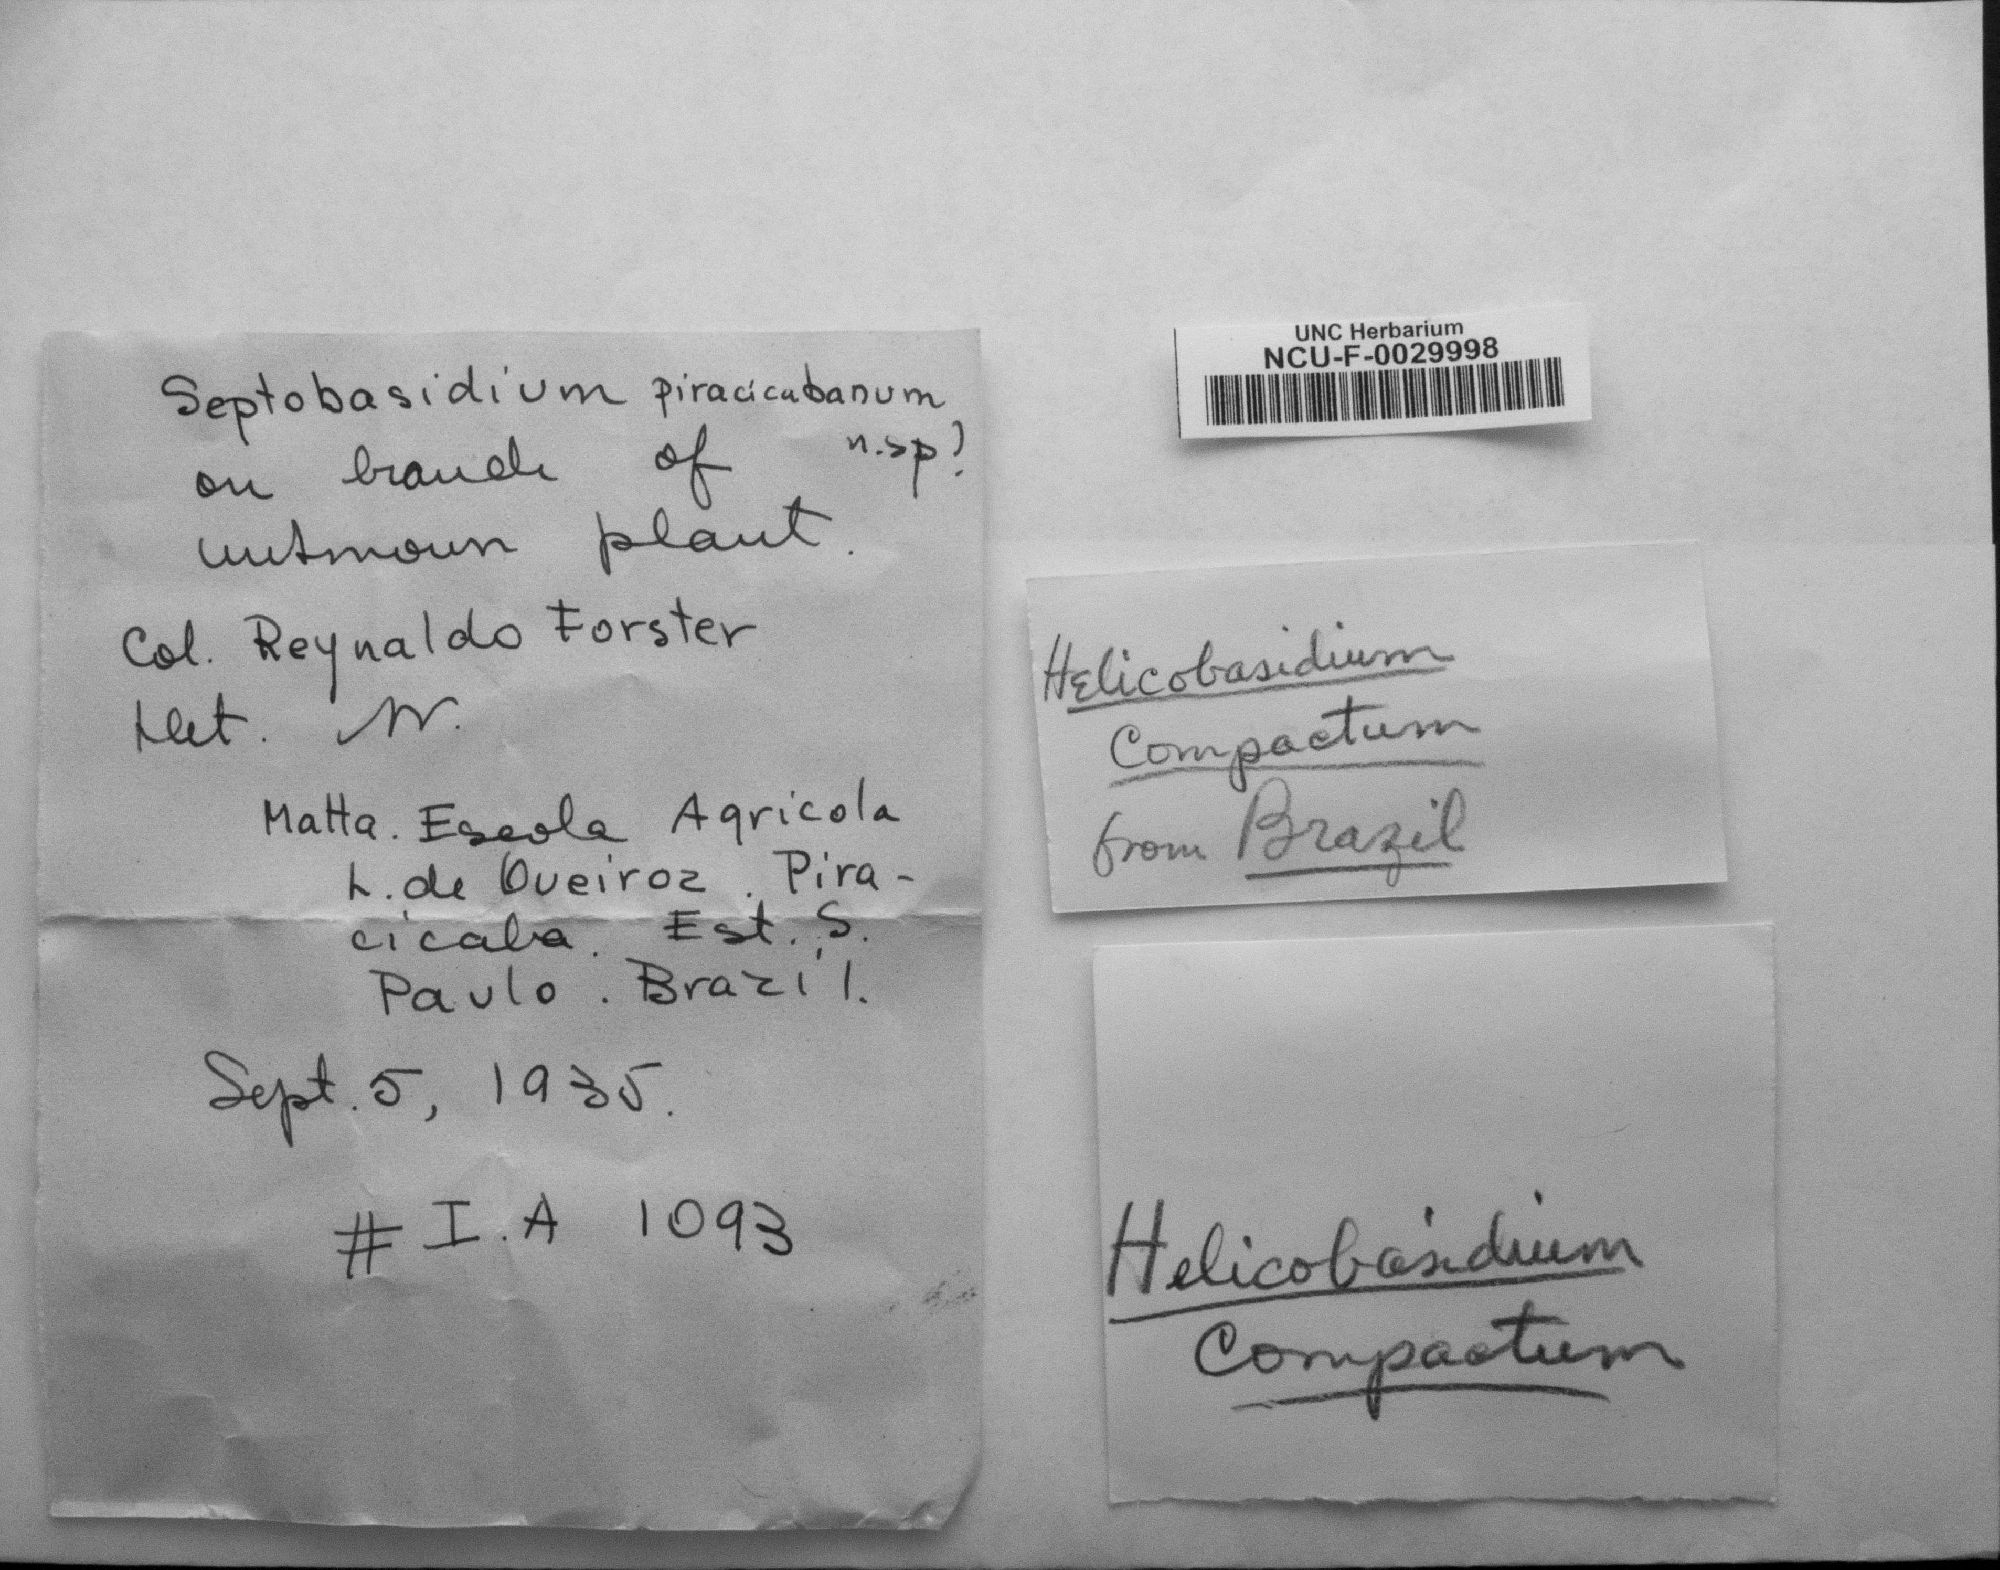 Septobasidium piracicabanum
n.sp?
on branch of
unknown plant.
Col. Reynaldo Forster
Det. W.
Matta. Escola Agricola
L. de Queiroz. Pira-
cicaba. Est. S.
Paulo. Brazil.
Sept. 5, 1935.
# I.A 1093
UNC Herbarium
NCU-F-0029998
Helicobasidium
Compactum
from Brazil
Helicobasidium
Compactum